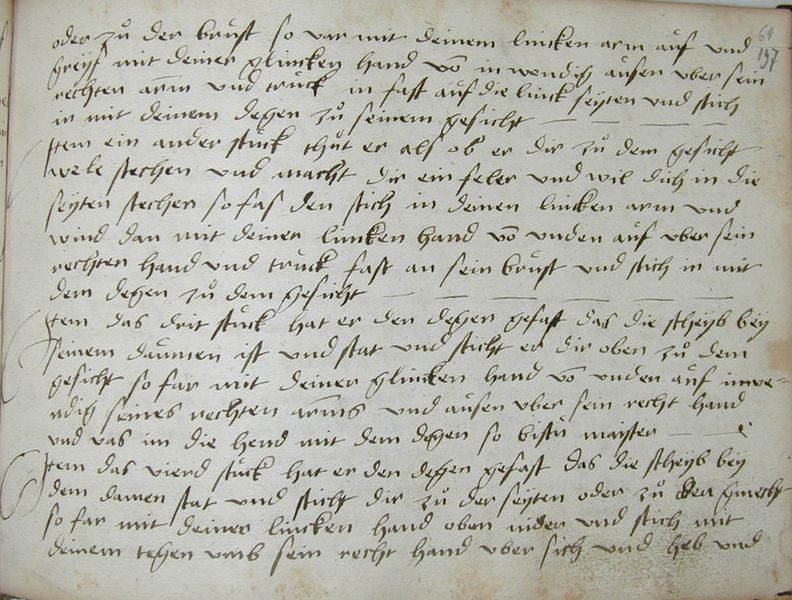 69
197
oder zu der brust so var mit deinem lincken arm auf und
greyf mit deiner glincken hand vo inwendig ausen uber sein
rechten arm und truck in fast auf die linck seyten und stich
in mit deinem degen zu seinem gesicht
Item ein ander stuck thut er als ob er dir zu dem gesicht
wele stechen und macht dir ein feler und wil dich in die
seyten stechen so fas den stich in deinen lincken arm und
wind dan mit deiner lincken hand vo unden auf uber sein
rechten hand und truck fast an sein brust und stich in mit
dem degen zu dem gesicht
Item das drit stuck hat er den degen gefast das die scheyb bey
seinem daumen ist und stat und sticht er dir oben zu dem
gesicht so far mit deiner glincken hand vo unden auf inwe=
ndig seines rechten arms und ausen uber sein recht hand
und vas im die hend mit dem degen so bistu maister
Item das vierd stuck hat er den degen gefast das die scheyb bey
dem damen stat und sticht dir zu der seyten oder zu den gmecht
so far mit deiner lincken hand oben nider und stich mit
deinem tegen umb sein recht hand uber sich und heb und